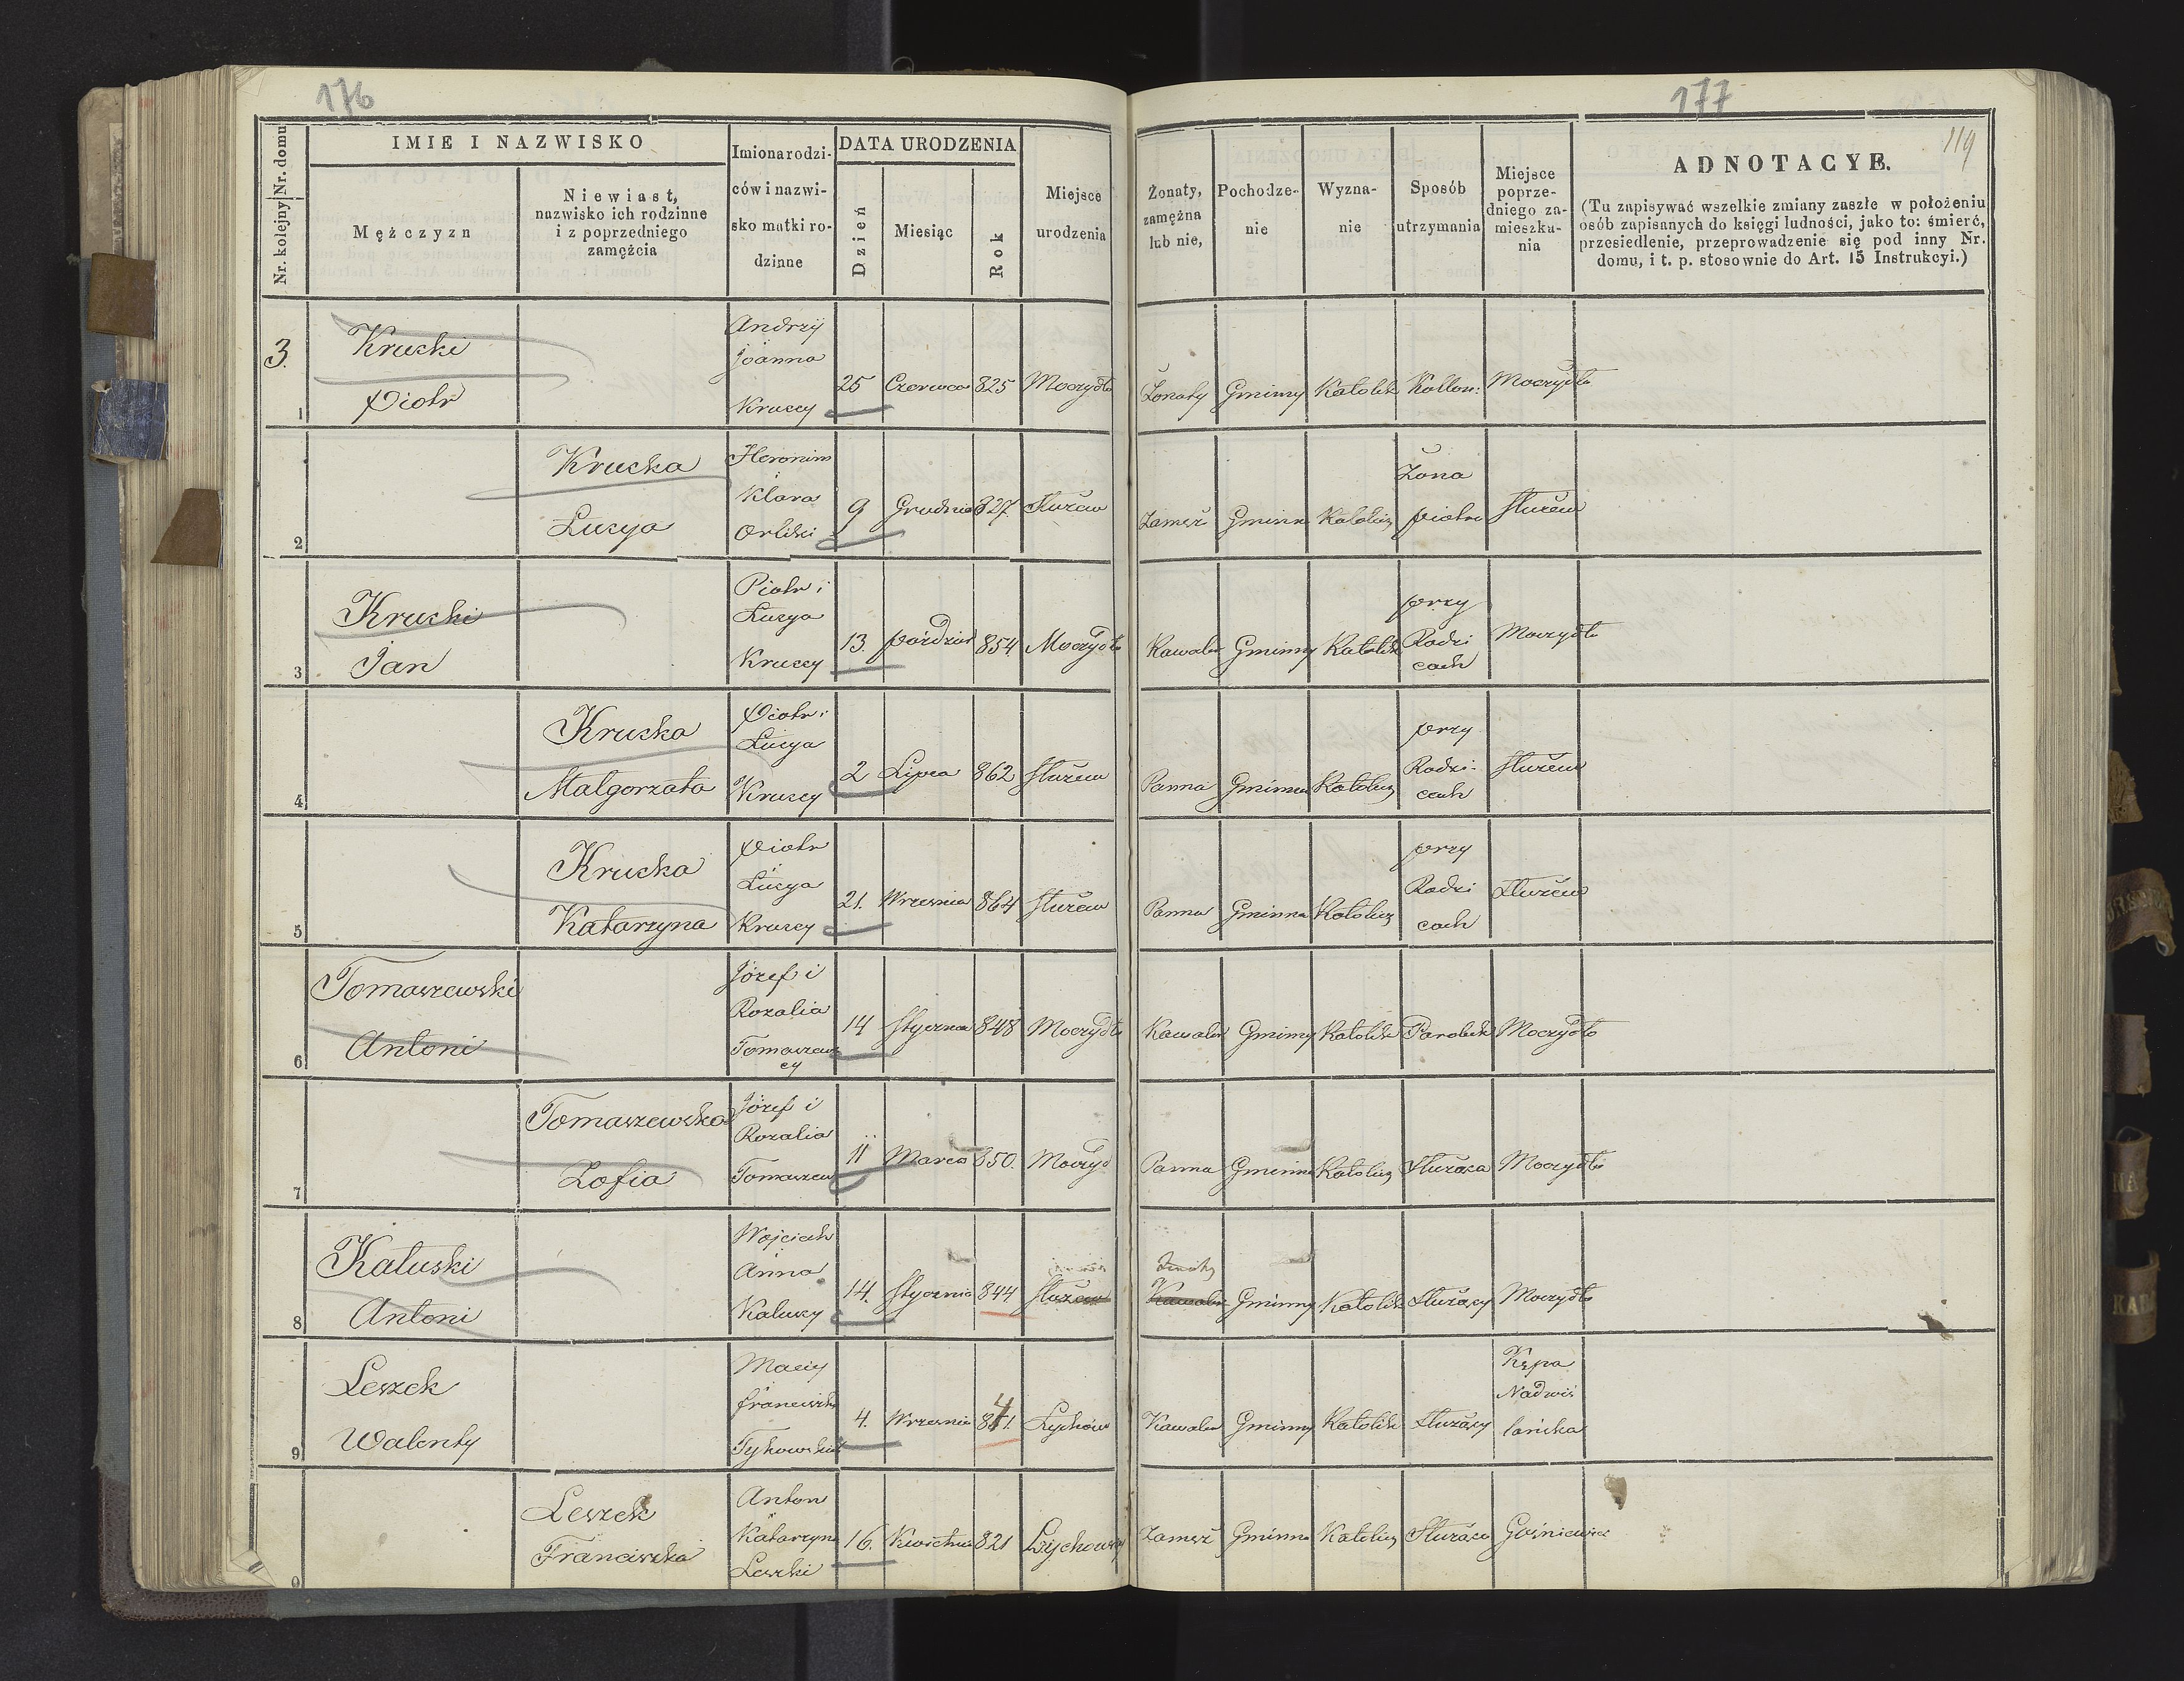 176
177
119
Nr. kolejny Nr. domu
IMIE I NAZWISKO
Mężczyzn
Niewiast,
nazwisko ich rodzinne
i z poprzedniego
zamęźcia
Imiona rodzi-
ców i nazwi-
sko matki ro-
dzinne
DATA URODZENIA
Dzień
Miesiąc
Rok
Miejsce
urodzenia
Żonaty,
zamężna
lub nie,
Pochodze-
nie
Wyzna-
nie
Sposób
utrzymania
Miejsce
poprze-
dniego za-
mieszka-
nia
ADNOTACYE.
(Tu zapisywać wszelkie zmiany zaszłe w położeniu
osób zapisanych do księgi ludności, jako to: śmierć,
przesiedlenie, przeprowadzenie się pod inny Nr.
domu, i t. p. stosownie do Art. 15 Instrukcyi.)
3.
1
Krucki
Piotr
Andrzy
Joanna
Kruccy
25 Czerwca 825 Moczydło
Żonaty Gminny Katolik Kollon: Moczydło
2
Krucka
Lucya
Heronim
i
Klara
Orliski
9 Grudnia 827. Służew
Zamęż Gminna Katolicz
Żona
Piotra
Służew
3
Krucki
Jan
Piotr i
Lucya
Kruccy
13. Paździer 854 Moczydło
Kawaler Gminny Katolik
przy
Rodzi
cach
Moczydło
4
Krucka
Małgorzata
Piotr i
Lucya
Kruccy
2 Lipca 862 Służew
Panna Gminna Katolicz
przy
Rodzi-
cach
Służew
5
Krucka
Katarzyna
Piotr
i
Lucya
Kruccy
21. Września 864 Służew
Panna Gminna Katolicz
przy
Rodzi
cach
Służew
6
Tomaszewski
Antoni
Józef i
Rozalia
Tomaszews
cy
14 Stycznia 848 Moczydło
Kawaler Gminny Katolik Parobek Moczydło
7
Tomaszewska
Zofia
Józef i
Rozalia
Tomaszew
11 Marca 850. Moczyd
Panna Gminna Katolicz Służąca Moczydło
8
Kałuski
Antoni
Wojciech
i
Anna
Kałuscy
14. Stycznia 844 Służew
Żonaty
Kawaler Gminny Katolik Służący Moczydło
9
Leszek
Walenty
Maciy
i
Franciszka
Tykowskich
4. Września 841. Łychów
Kawaler Gminny Katolik Służący
Kępa
Nadwiś
lańska
0
Leszek
Franciszka
Anton
i
Katarzyna
Leszki
16. Kwietnia 821
Zamęż Gminna Katolicz Służąca Gośniewice